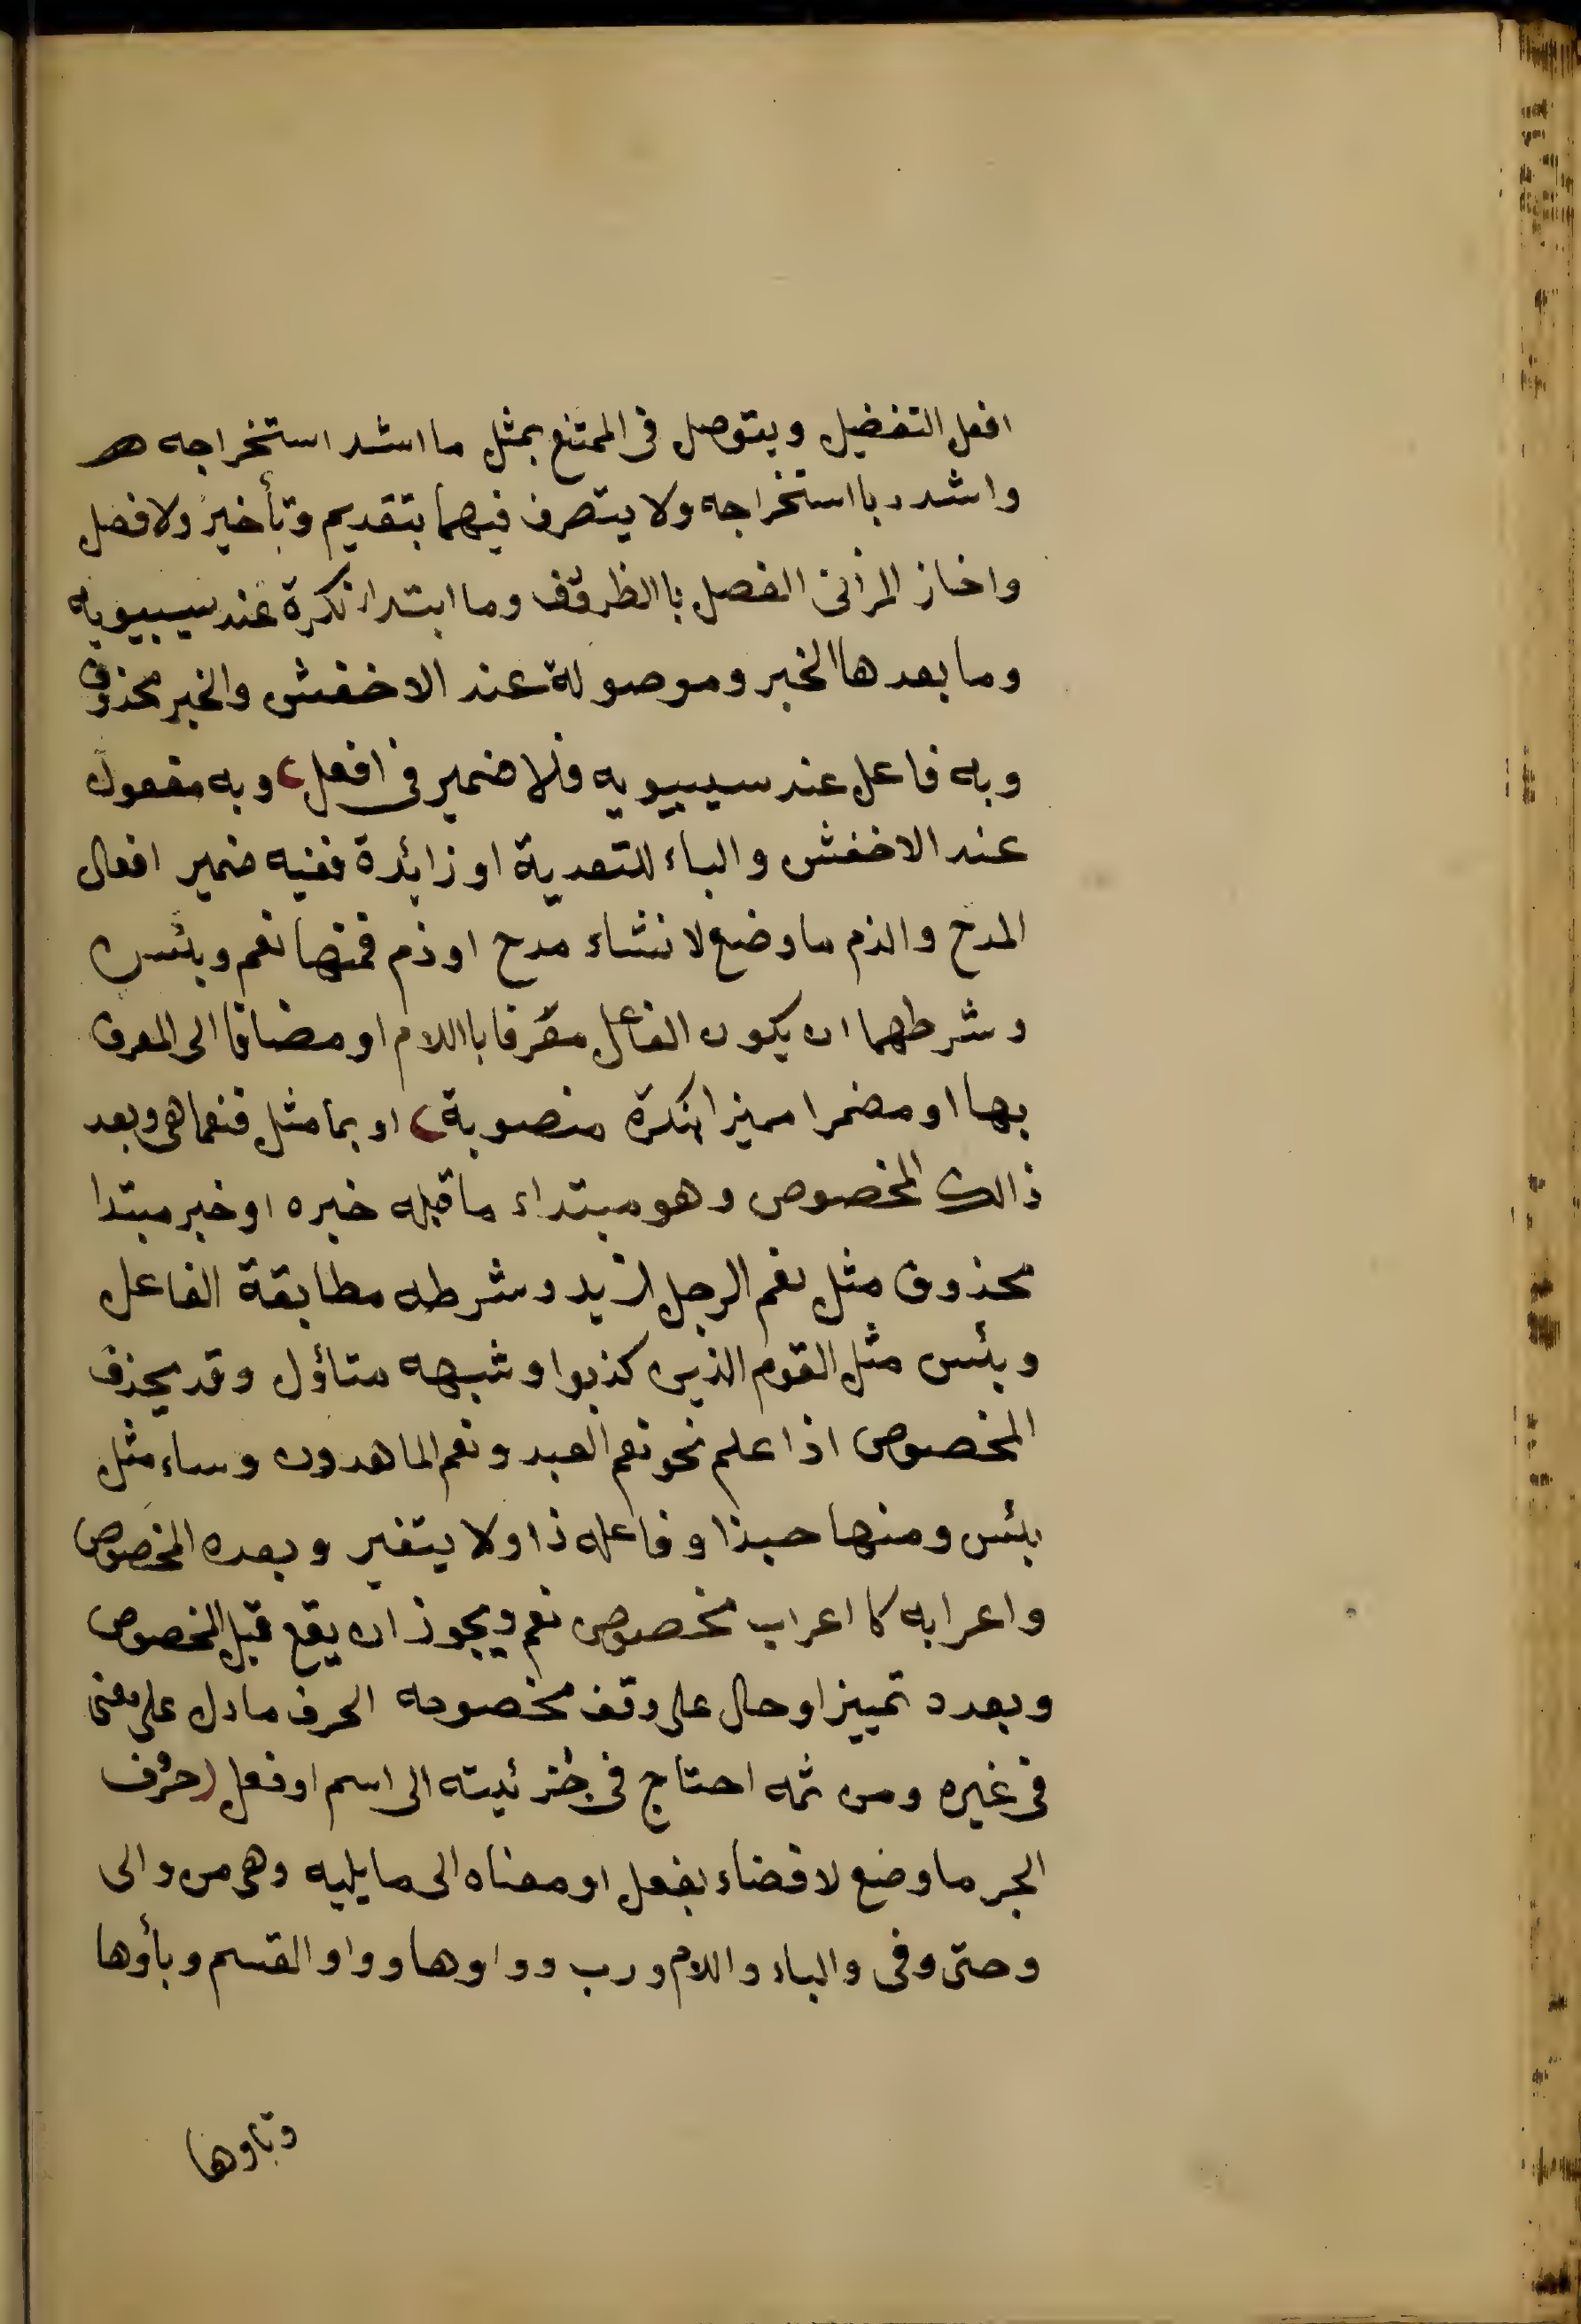 افعل التفضيل ويتوصل فى الممتنع بمثل ما اشد استخراجه
واشدد با استخراجه ولا يتصرف فيهما بتقديم وتأخير ولا فصل
واخاز المزانى الفصل با الظروف وما ابتداء نكرة عند سيبيويه
وما بعدها الخبر وموصولة عند الاخفش والخبر محذوف
وبه فاعل عند سيبيويه فلا ضمير فى افعل وبه مفعول
عند الاخفش والباء للتعدية او زائدة ففيه ضمير افعال
المدح والذم ما وضع لانشاء مدح او ذم فمنها نعم وبئس
وشرطهما ان يكون الفاعل معرفا با اللام او مضافا الى المعرف
بها او مضمرا مميزا نكرة منصوبة او بما مثل فنعما هى وبعد
ذالك المخصوص وهو مبتداء ما قبله خبره او خبر مبتدا
محذوف مثل نعم الرجل زيد وشرطه مطابقة الفاعل
وبئس مثل القوم الذين كذبوا وشبهه متاؤل وقد يحذف
المخصوص اذا علم نحو نعم العبد ونعم الماهدون وساء مثل
بئس ومنها حبذا وفاعله ذا ولا يتغير وبعده المخصوص
واعرابه كا اعراب مخصوص نعم ويجوز ان يقع قبل المخصوص
وبعدد تمييز او حال على وقف مخصوصه الحرف ما دل على معنى
فى غيره ومن ثمه احتاج فى جزئيته الى اسم او فعل (حروف
الجر ما وضع لافضاء بفعل او معناه الى ما يليه وهى من والى
وحتى وفى والباء واللام ورب وواوها وواو القسم وبأوها
وتاوها